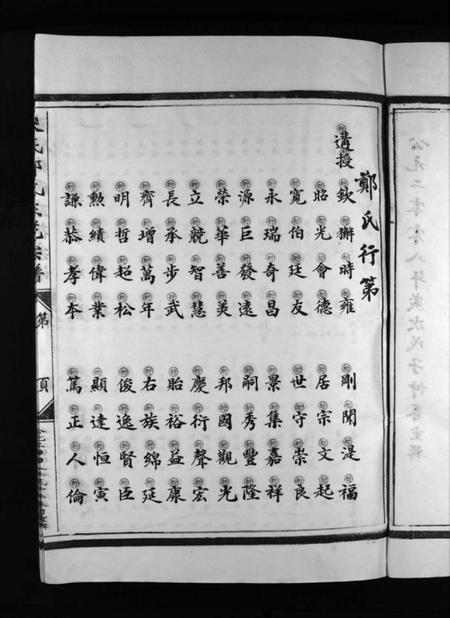 鄭氏行第
遘授
欽獬時雍 剛聞湜福
昭光會德 居宗文起
寬伯廷友 世守崇良
永瑞奇昌 景集嘉祥
源巨發遠 嗣秀豐隆
榮華善美 邦國觀光
立競智慧 慶衍聲宏
長承步武 貽裕益康
齊增萬年 右族綿延
明哲超松 俊逸賢臣
勲績偉業 顯達恒寅
謙恭孝本 篤正人倫
第 頁